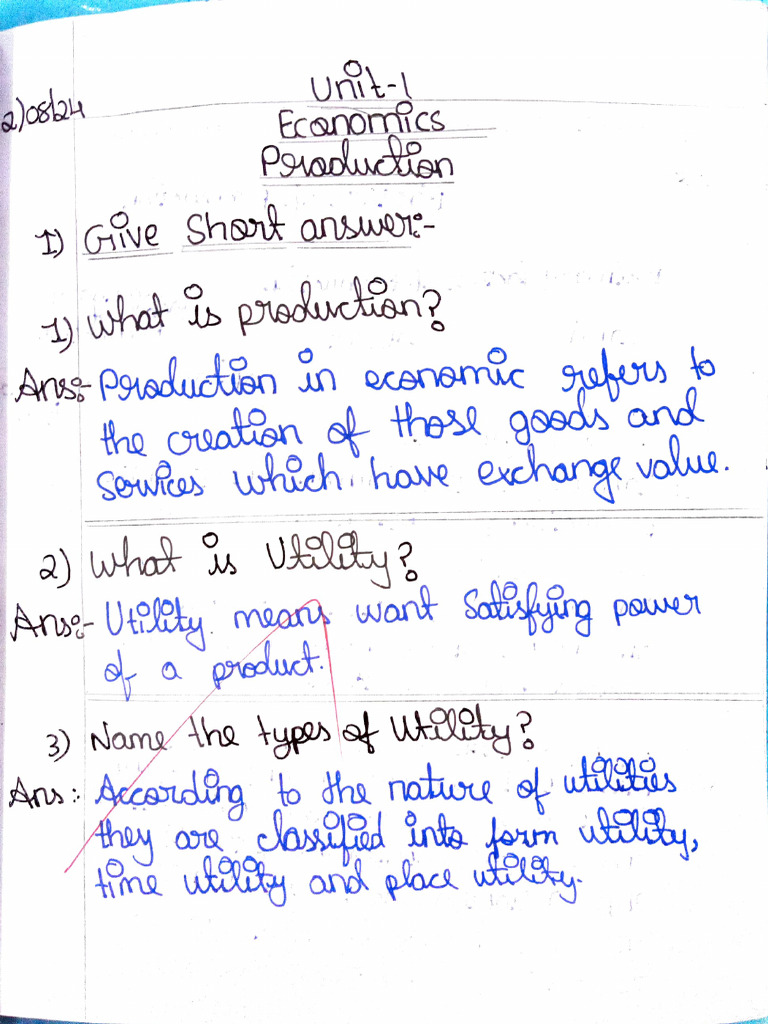 Unit-1
2)08/24
Economics
Production
I) Give Short answer:-
1) What is production?
Ans:- Production in economic refers to
the creation of those goods and
Services which have exchange value.
2) What is Utility?
Ans:- Utility means want Satisfying power
of a product.
3) Name the types of Utility?
Ans: According to the nature of utilities
they are classified into form utility,
time utility and place utility.